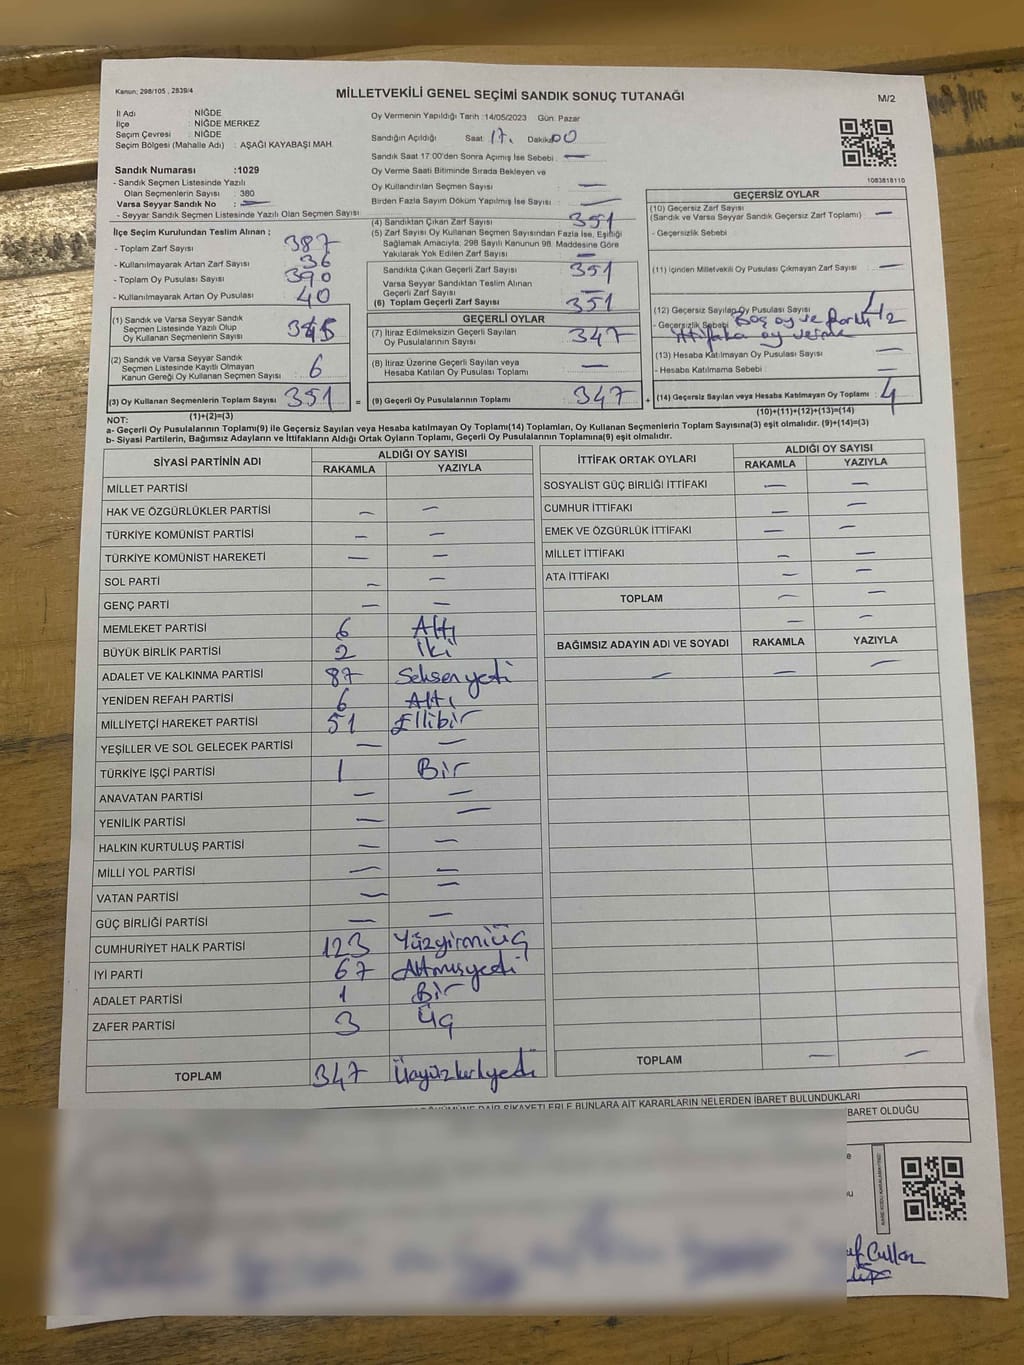 Kanun; 298/105 , 2839/4
MİLLETVEKİLİ GENEL SEÇİMİ SANDIK SONUÇ TUTANAĞI
M/2
İl Adı : NİĞDE
İlçe : NİĞDE MERKEZ
Seçim Çevresi : NİĞDE
Seçim Bölgesi (Mahalle Adı) : AŞAĞI KAYABAŞI MAH.
Oy Vermenin Yapıldığı Tarih :14/05/2023 Gün: Pazar
Sandığın Açıldığı Saat: 17. Dakika: 00
Sandık Saat 17:00'den Sonra Açılmış İse Sebebi : —
Oy Verme Saati Bitiminde Sırada Bekleyen ve
Oy Kullandırılan Seçmen Sayısı : —
Birden Fazla Sayım Döküm Yapılmış İse Sayısı : —
1083818110
Sandık Numarası :1029
- Sandık Seçmen Listesinde Yazılı
Olan Seçmenlerin Sayısı : 380
Varsa Seyyar Sandık No : —
- Seyyar Sandık Seçmen Listesinde Yazılı Olan Seçmen Sayısı:
İlçe Seçim Kurulundan Teslim Alınan ;
- Toplam Zarf Sayısı : 387
- Kullanılmayarak Artan Zarf Sayısı : 36
- Toplam Oy Pusulası Sayısı : 390
- Kullanılmayarak Artan Oy Pusulası : 40
(1) Sandık ve Varsa Seyyar Sandık
Seçmen Listesinde Yazılı Olup
Oy Kullanan Seçmenlerin Sayısı : 345
(2) Sandık ve Varsa Seyyar Sandık
Seçmen Listesinde Kayıtlı Olmayan
Kanun Gereği Oy Kullanan Seçmen Sayısı : 6
(3) Oy Kullanan Seçmenlerin Toplam Sayısı : 351
(4) Sandıktan Çıkan Zarf Sayısı : 351
(5) Zarf Sayısı Oy Kullanan Seçmen Sayısından Fazla İse, Eşitliği
Sağlamak Amacıyla, 298 Sayılı Kanunun 98. Maddesine Göre
Yakılarak Yok Edilen Zarf Sayısı : —
Sandıkta Çıkan Geçerli Zarf Sayısı : 351
Varsa Seyyar Sandıktan Teslim Alınan
Geçerli Zarf Sayısı : —
(6) Toplam Geçerli Zarf Sayısı : 351
GEÇERLİ OYLAR
(7) İtiraz Edilmeksizin Geçerli Sayılan
Oy Pusulalarının Sayısı : 347
(8) İtiraz Üzerine Geçerli Sayılan veya
Hesaba Katılan Oy Pusulası Toplamı : —
= (9) Geçerli Oy Pusulalarının Toplamı : 347
GEÇERSİZ OYLAR
(10) Geçersiz Zarf Sayısı : —
(Sandık ve Varsa Seyyar Sandık Geçersiz Zarf Toplamı)
- Geçersizlik Sebebi :
(11) İçinden Milletvekili Oy Pusulası Çıkmayan Zarf Sayısı : —
(12) Geçersiz Sayılan Oy Pusulası Sayısı :
- Geçersizlik Sebebi : Boş oy ve
İttifaka oy verme
(13) Hesaba Katılmayan Oy Pusulası Sayısı : —
- Hesaba Katılmama Sebebi : —
+ (14) Geçersiz Sayılan veya Hesaba Katılmayan Oy Toplamı : 4
NOT: (1)+(2)=(3)
(10)+(11)+(12)+(13)=(14)
a- Geçerli Oy Pusulalarının Toplamı(9) ile Geçersiz Sayılan veya Hesaba katılmayan Oy Toplamı(14) Toplamları, Oy Kullanan Seçmenlerin Toplam Sayısına(3) eşit olmalıdır. (9)+(14)=(3)
b- Siyasi Partilerin, Bağımsız Adayların ve İttifakların Aldığı Ortak Oyların Toplamı, Geçerli Oy Pusulalarının Toplamına(9) eşit olmalıdır.
SİYASİ PARTİNİN ADI ALDIĞI OY SAYISI
RAKAMLA YAZIYLA
MİLLET PARTİSİ
HAK VE ÖZGÜRLÜKLER PARTİSİ — —
TÜRKİYE KOMÜNİST PARTİSİ — —
TÜRKİYE KOMÜNİST HAREKETİ — —
SOL PARTİ — —
GENÇ PARTİ — —
MEMLEKET PARTİSİ 6 Altı
BÜYÜK BİRLİK PARTİSİ 2 İki
ADALET VE KALKINMA PARTİSİ 87 Seksenyedi
YENİDEN REFAH PARTİSİ 6 Altı
MİLLİYETÇİ HAREKET PARTİSİ 51 Ellibir
YEŞİLLER VE SOL GELECEK PARTİSİ — —
TÜRKİYE İŞÇİ PARTİSİ 1 Bir
ANAVATAN PARTİSİ — —
YENİLİK PARTİSİ — —
HALKIN KURTULUŞ PARTİSİ — —
MİLLİ YOL PARTİSİ — —
VATAN PARTİSİ — —
GÜÇ BİRLİĞİ PARTİSİ — —
CUMHURİYET HALK PARTİSİ 123 Yüzyirmiüç
İYİ PARTİ 67 Altmışyedi
ADALET PARTİSİ 1 Bir
ZAFER PARTİSİ 3 Üç
TOPLAM 347 Üçyüzkırkyedi
İTTİFAK ORTAK OYLARI ALDIĞI OY SAYISI
RAKAMLA YAZIYLA
SOSYALİST GÜÇ BİRLİĞİ İTTİFAKI — —
CUMHUR İTTİFAKI — —
EMEK VE ÖZGÜRLÜK İTTİFAKI — —
MİLLET İTTİFAKI — —
ATA İTTİFAKI — —
TOPLAM — —
— —
BAĞIMSIZ ADAYIN ADI VE SOYADI RAKAMLA YAZIYLA
— — —
TOPLAM — —
DAİR ŞİKAYETLERLE BUNLARA AİT KARARLARIN NELERDEN İBARET BULUNDUKLARI
BARET OLDUĞU